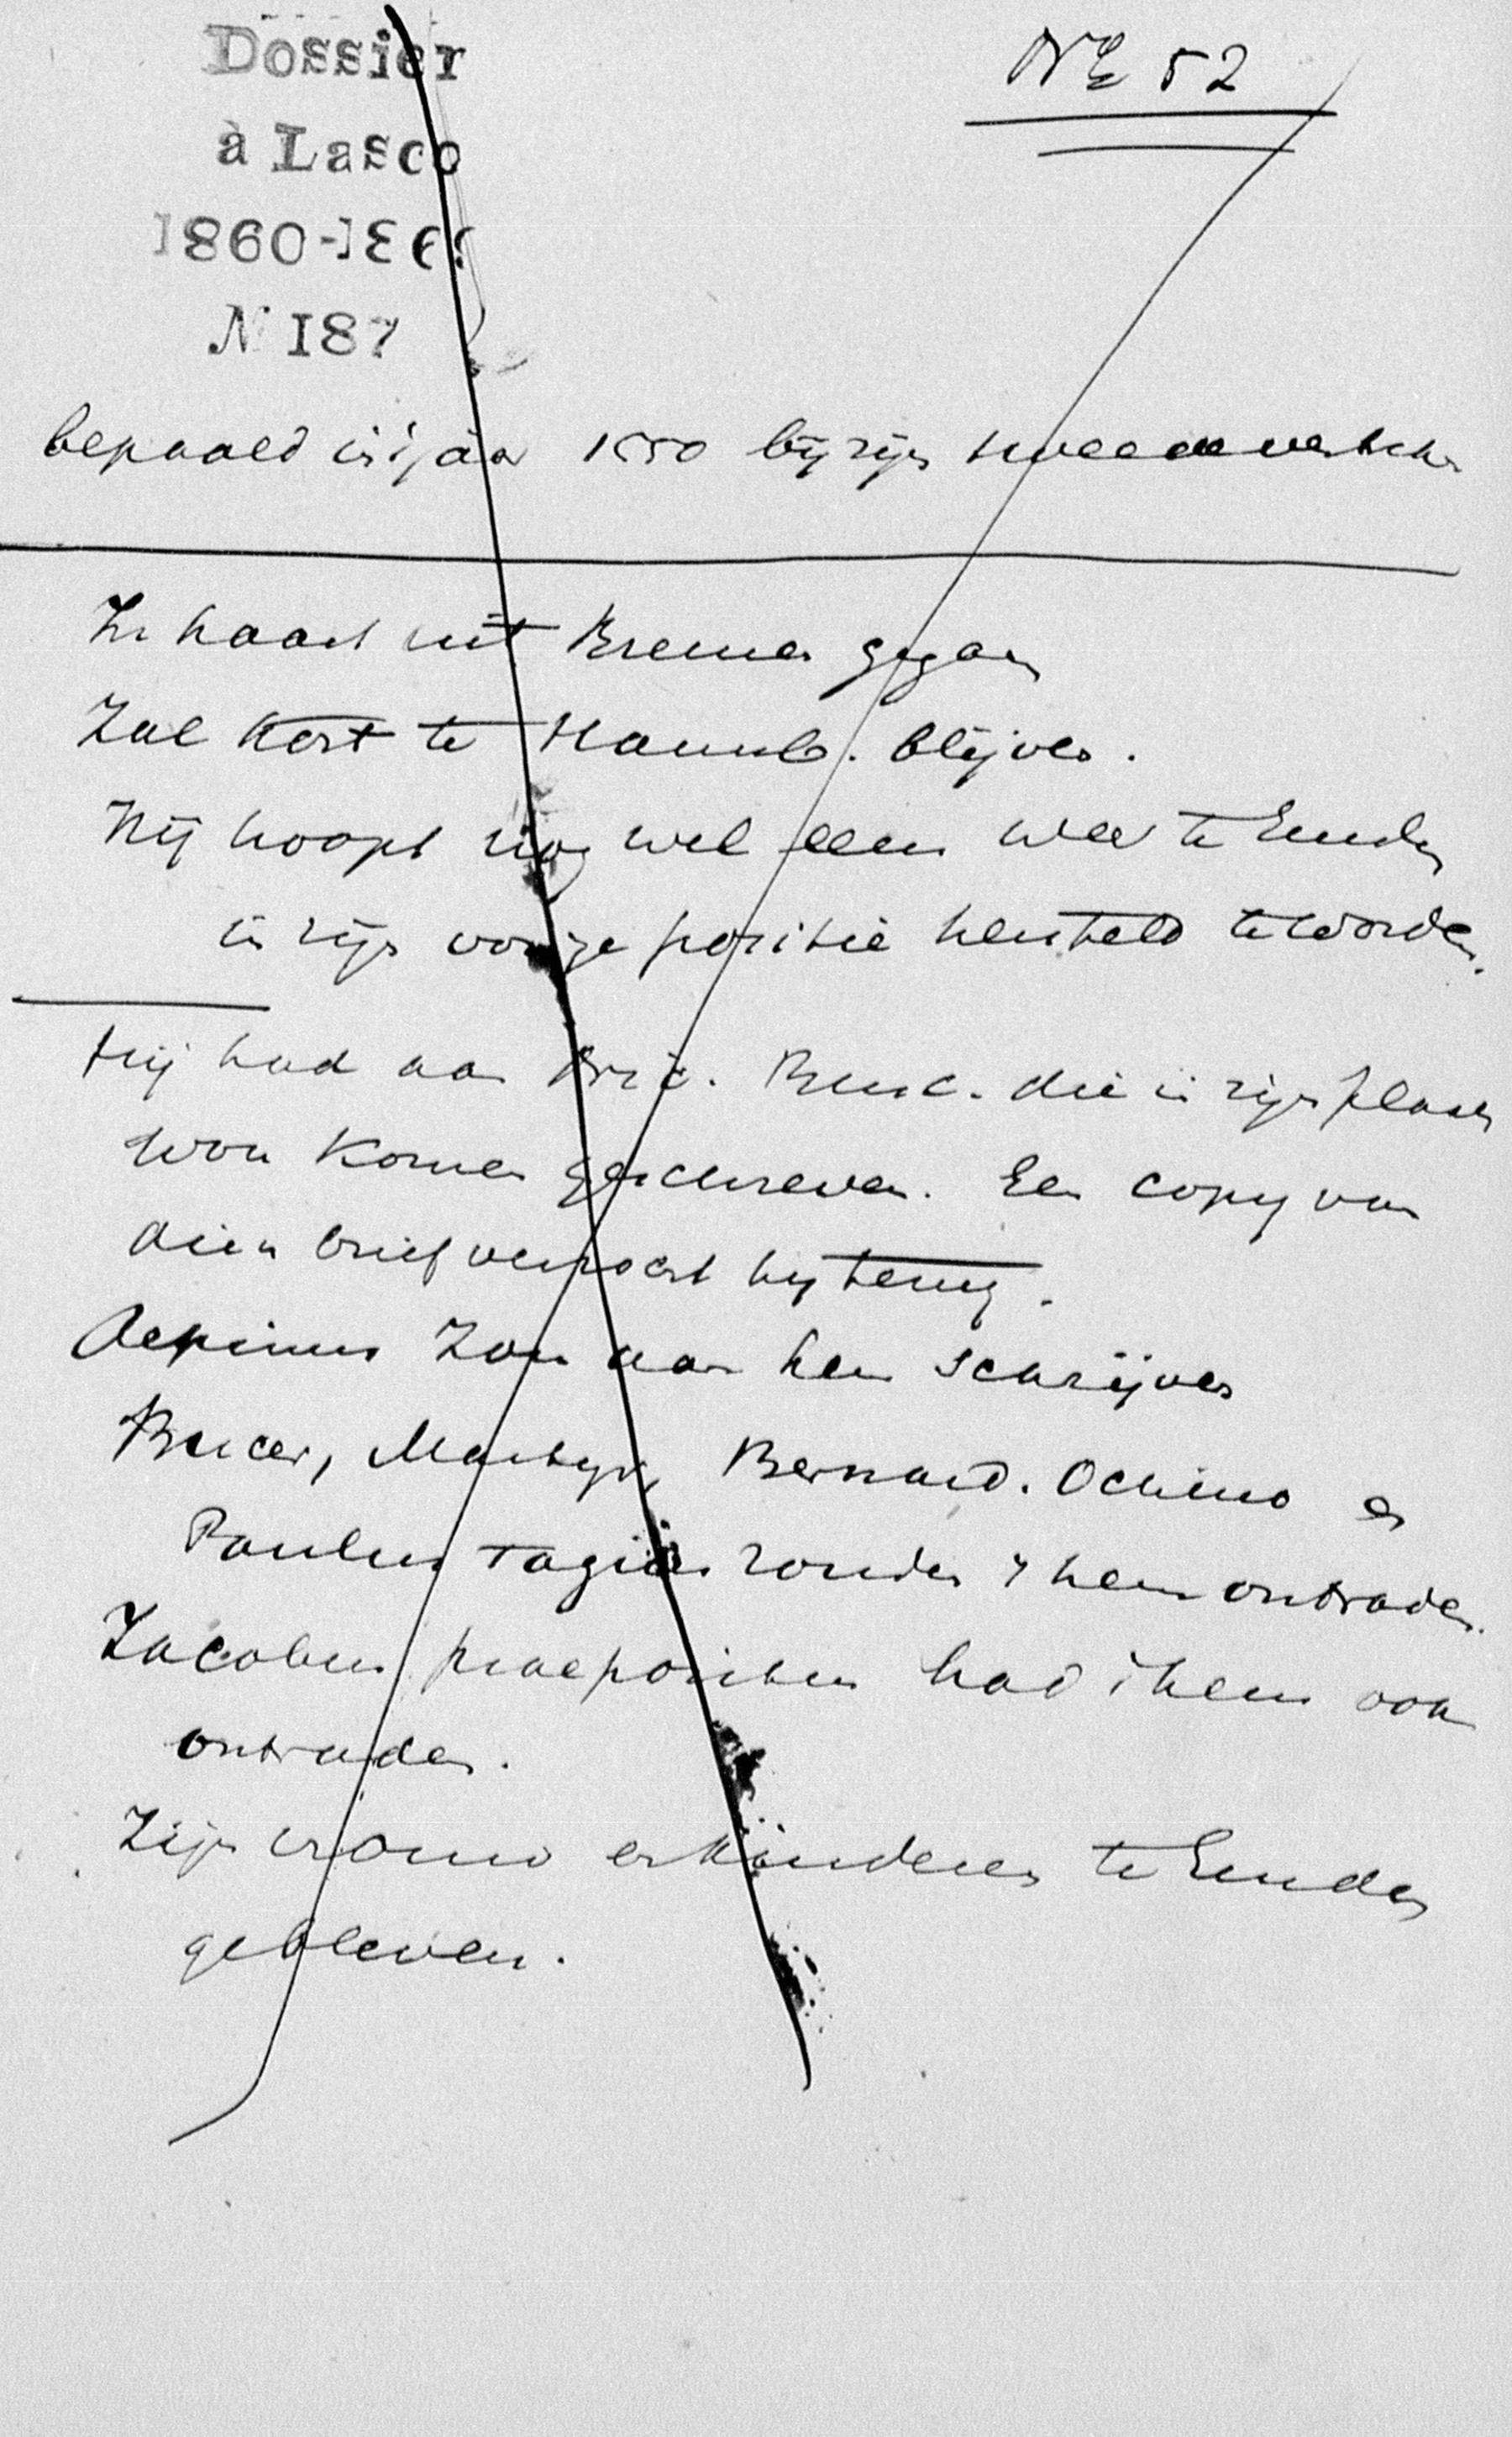 Dossier
à Lasco
1860-186?
N 187
NE 52
bepaald in 't jaar 1550 bij zijn tweede vertrek
In haast uit Bremen gegaan
Zal kort te Hamb. blijven.
Hij hoopt nog wel eens weer te Emden
in zijn vorige positie hersteld te worden.
Hij had aan Buc. die in zijn plaats
wou komen geschreven. Een copy van
dien brief verzoekt hij terug.
Aepinus zou aan hem schrijven
Bucer, Martyr, Bernard. Ochino en
Paulus Fagius zouden 't hem ontraden.
Jacobus praepositus had 't hem ook
ontraden.
Zijn vrouw en kinderen te Emden
gebleven.